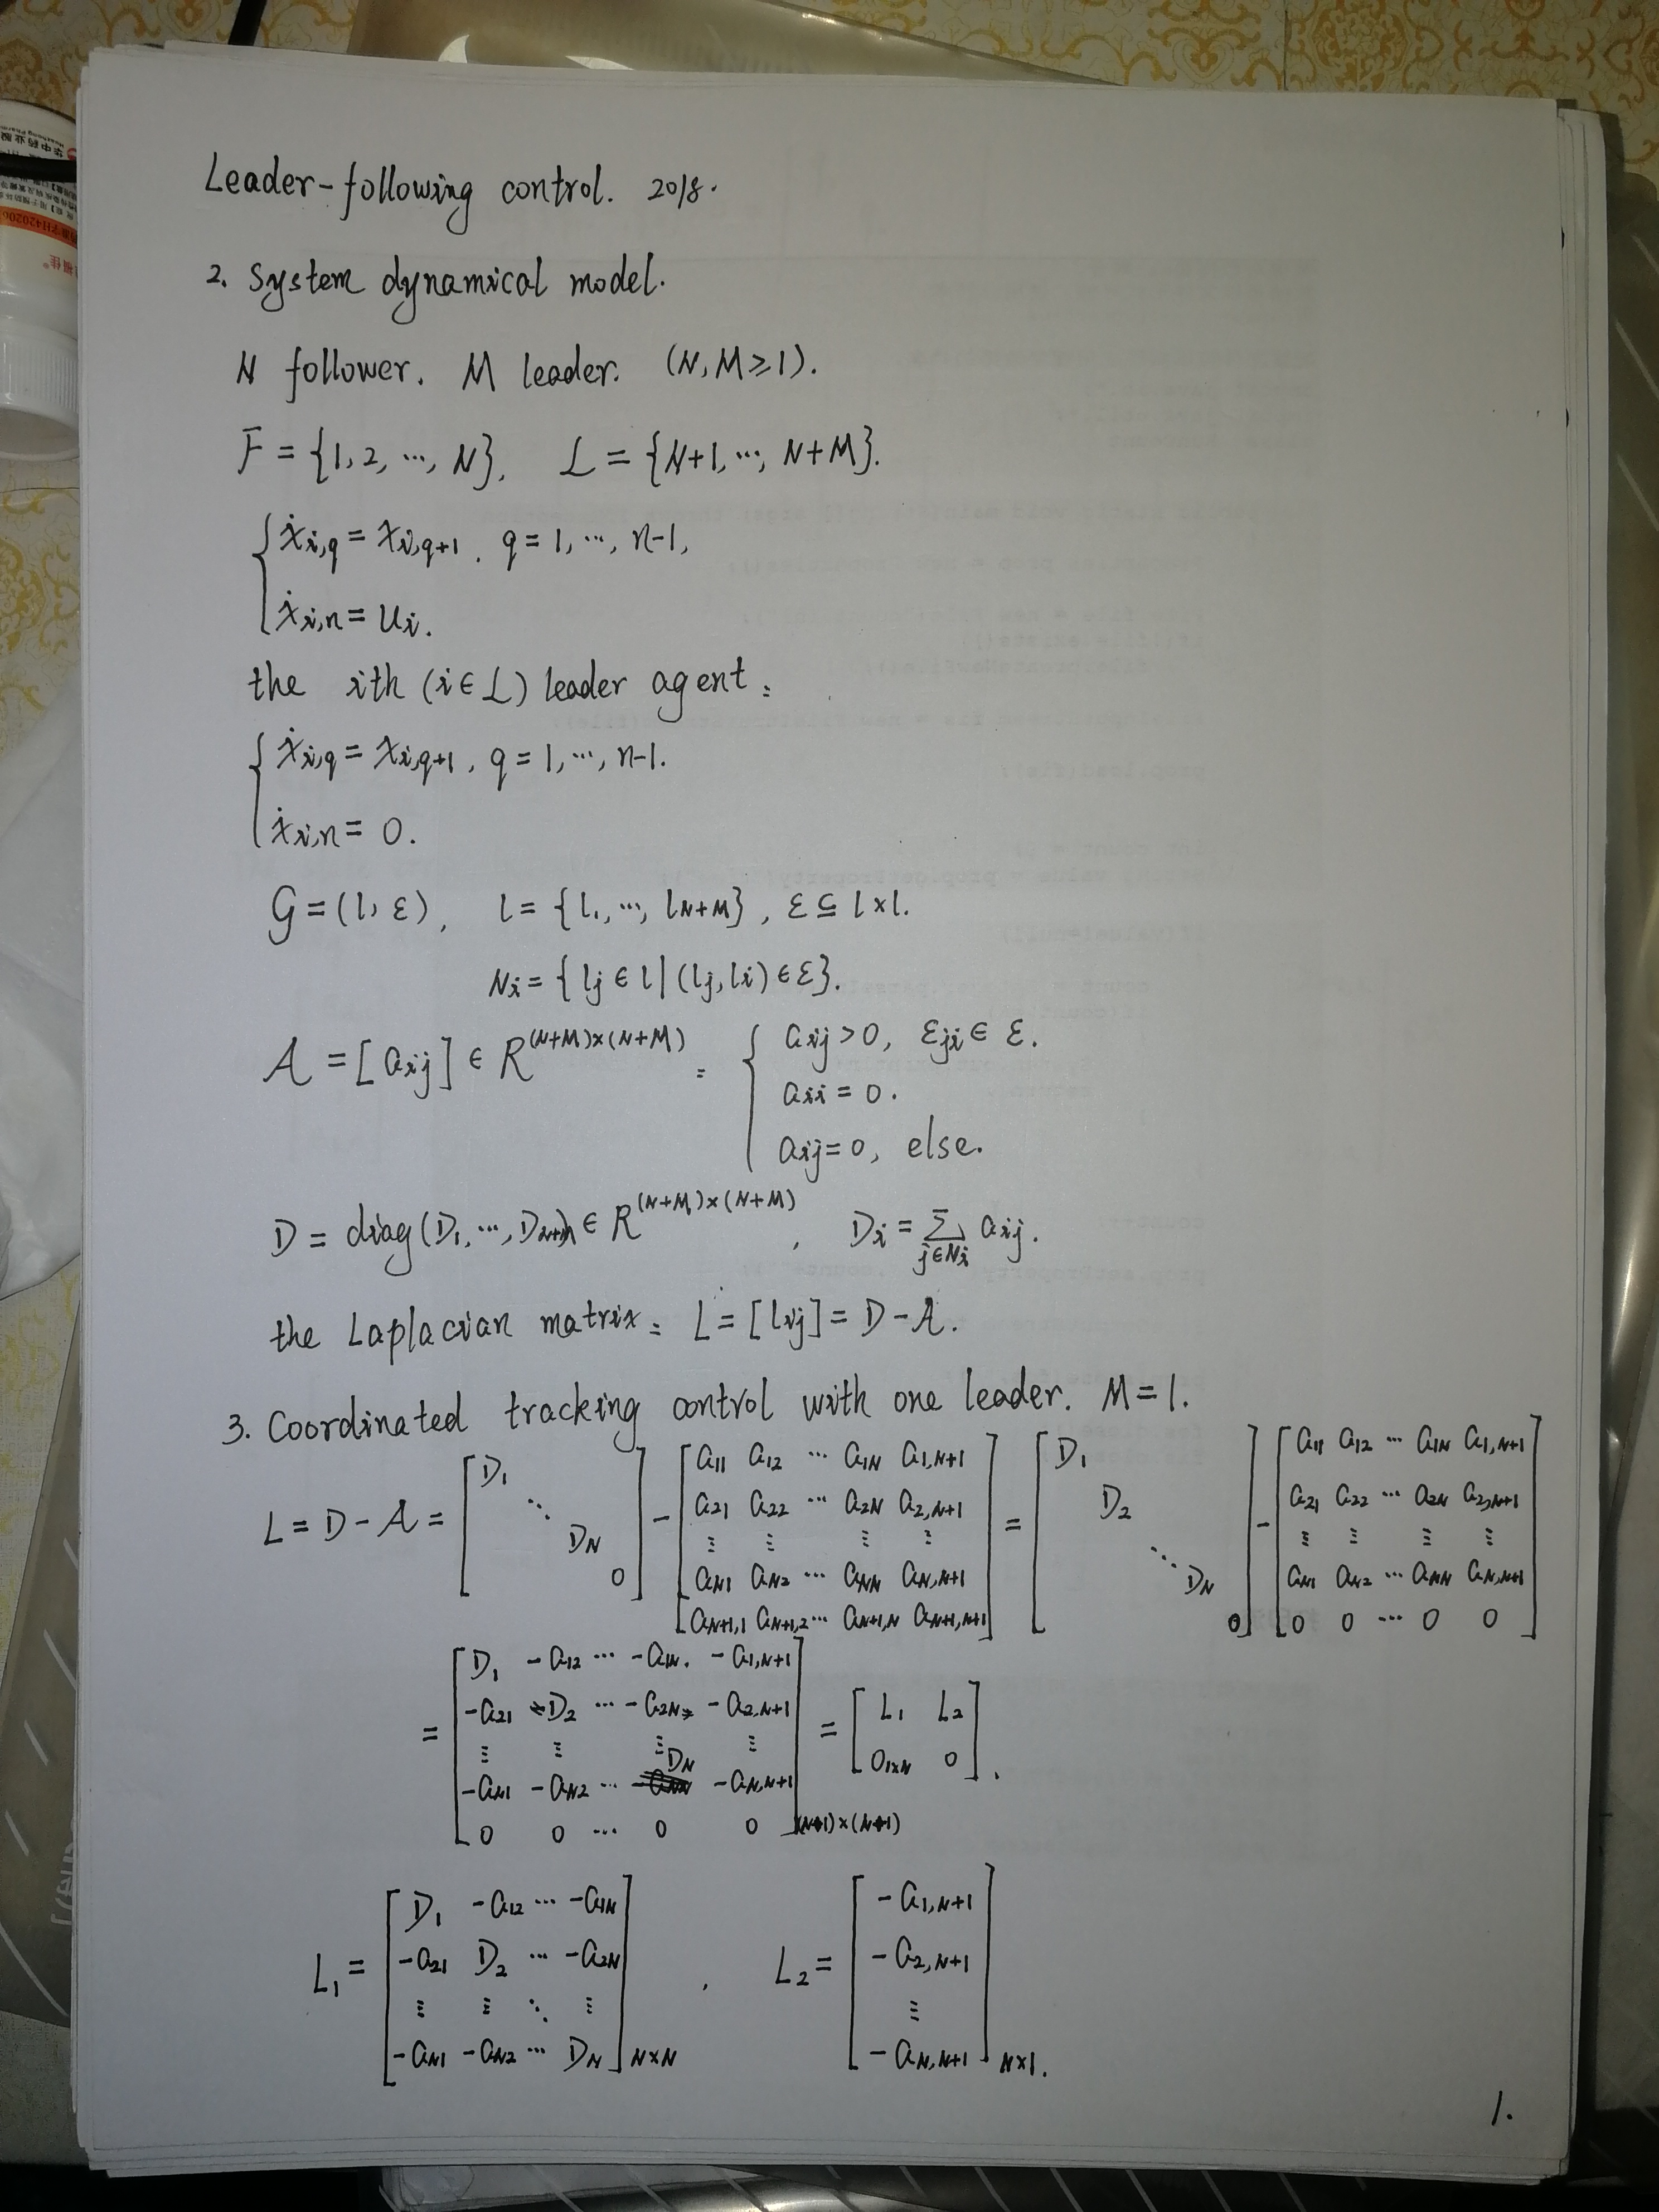 Leader-following control. 2018.
2. System dynamical model.
N follower. M leader. (N, M ≥ 1).
F = {1, 2, ⋯, N}, L = {N+1, ⋯, N+M}.
{ ẋ_{i,q} = x_{i,q+1}, q = 1, ⋯, n-1,
ẋ_{i,n} = u_i.
the ith (i ∈ L) leader agent:
{ ẋ_{i,q} = x_{i,q+1}, q = 1, ⋯, n-1.
ẋ_{i,n} = 0.
G = (l, ε), l = {l_1, ⋯, l_{N+M}}, ε ⊆ l × l.
N_i = {l_j ∈ l | (l_j, l_i) ∈ ε}.
A = [a_{ij}] ∈ R^{(N+M)×(N+M)} : { a_{ij} > 0, ε_{ji} ∈ ε.
a_{ii} = 0.
a_{ij} = 0, else.
D = diag(D_1, ⋯, D_{N+M}) ∈ R^{(N+M)×(N+M)}, D_i = Σ_{j∈N_i} a_{ij}.
the Laplacian matrix: L = [l_{ij}] = D - A.
3. Coordinated tracking control with one leader. M = 1.
L = D - A = [D_1 ⋱ D_N 0] - [a_{11} a_{12} ⋯ a_{1N} a_{1,N+1}; a_{21} a_{22} ⋯ a_{2N} a_{2,N+1}; ⋮ ⋮ ⋮ ⋮; a_{N1} a_{N2} ⋯ a_{NN} a_{N,N+1}; a_{N+1,1} a_{N+1,2} ⋯ a_{N+1,N} a_{N+1,N+1}] = [D_1 D_2 ⋱ D_N 0] - [a_{11} a_{12} ⋯ a_{1N} a_{1,N+1}; a_{21} a_{22} ⋯ a_{2N} a_{2,N+1}; ⋮ ⋮ ⋮ ⋮; a_{N1} a_{N2} ⋯ a_{NN} a_{N,N+1}; 0 0 ⋯ 0 0]
= [D_1 -a_{12} ⋯ -a_{1N} -a_{1,N+1}; -a_{21} D_2 ⋯ -a_{2N} -a_{2,N+1}; ⋮ ⋮ ⋮ ⋮; -a_{N1} -a_{N2} ⋯ D_N -a_{N,N+1}; 0 0 ⋯ 0 0]_{(N+1)×(N+1)} = [L_1 L_2; 0_{1×N} 0].
L_1 = [D_1 -a_{12} ⋯ -a_{1N}; -a_{21} D_2 ⋯ -a_{2N}; ⋮ ⋮ ⋱ ⋮; -a_{N1} -a_{N2} ⋯ D_N]_{N×N}, L_2 = [-a_{1,N+1}; -a_{2,N+1}; ⋮; -a_{N,N+1}]_{N×1}.
1.